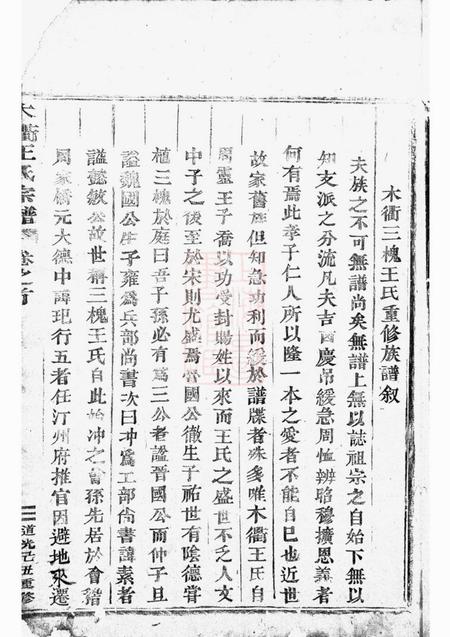 木衢三槐王氏重修族譜叙
夫族之不可無譜尚矣無譜上無以誌祖宗之自始下無以
知支派之分流凡夫吉凶慶吊緩急周恤辨昭穆擴恩義者
何有焉此孝子仁人所以隆一本之愛者不能自已也近世
故家舊族但知急功利而緩於譜牒者殊多唯木衢王氏自
周靈王子喬以功受封賜姓以來而王氏之盛世不乏人文
中子之後至於宋則尤盛焉晉國公徹生子祐世有陰德嘗
植三槐於庭曰吾子孫必有為三公者謚晉國公而仲子旦
謚魏國公生子雍為兵部尚書次曰冲為工部尚書諱素者
謚懿敏公故世稱三槐王氏自此始冲之曾孫先居於會稽
周家橋元大德中諱玘行五者任汀州府推官因避地來遷
木衢王氏宗譜 卷之首
道光乙丑重修